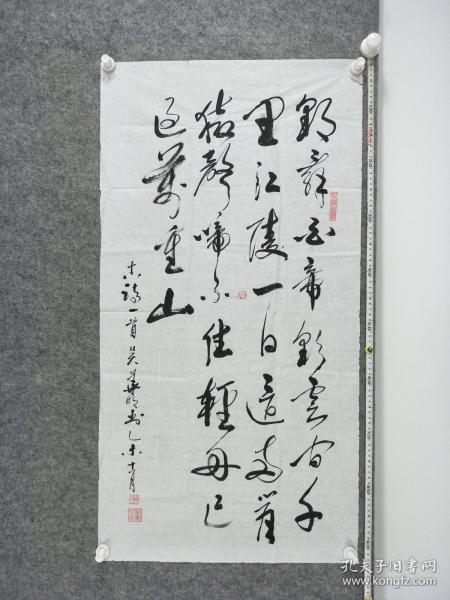 朝辞白帝彩雲间千
里江陵一日還两岸
猿聲啼不住輕舟已
过萬重山
古詩一首吴書乙未月
孔夫子旧书网
www.kongfz.com